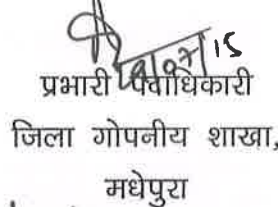 प्रभारी पदाधिकारी
जिला गोपनीय शाखा,
मधेपुरा